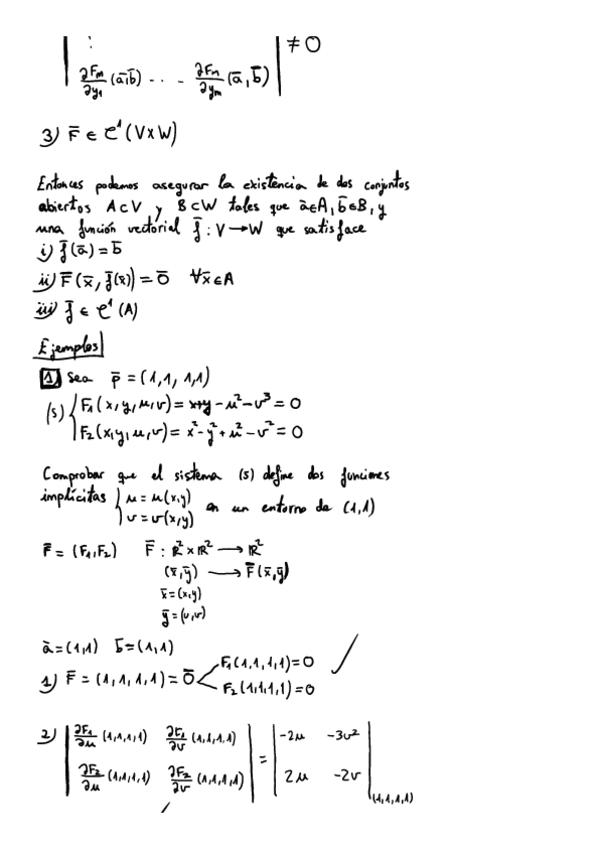 | ⋮ | ≠ 0
| ∂Fm/∂y1 (ā,b̄) . . . ∂Fn/∂ym (ā,b̄) |
3) F̄ ∈ C¹(V×W)
Entonces podemos asegurar la existencia de dos conjuntos
abiertos A⊂V y B⊂W tales que ā∈A, b̄∈B, y
una función vectorial f̄: V→W que satisface
i) f̄(ā) = b̄
ii) F̄(x̄, f̄(x̄)) = 0̄ ∀x̄∈A
iii) f̄ ∈ C¹(A)
Ejemplos
1) Sea p̄ = (1,1, 1,1)
(S) { F1(x,y,u,v) = x+y-u²-v³ = 0
F2(x,y,u,v) = x²-y²+u²-v² = 0
Comprobar que el sistema (S) define dos funciones
implícitas { u = u(x,y)
v = v(x,y) en un entorno de (1,1)
F̄ = (F1,F2) F̄ : R²×R² → R²
(x̄,ȳ) → F̄(x̄,ȳ)
x̄=(x,y)
ȳ=(u,v)
ā=(1,1) b̄=(1,1)
1) F̄ = (1,1,1,1) = 0̄ < F1(1,1,1,1)=0 ✓
F2(1,1,1,1)=0
2) | ∂F1/∂u (1,1,1,1) ∂F1/∂v (1,1,1,1) | = | -2u -3v² |
| ∂F2/∂u (1,1,1,1) ∂F2/∂v (1,1,1,1) | | 2u -2v |(1,1,1,1)